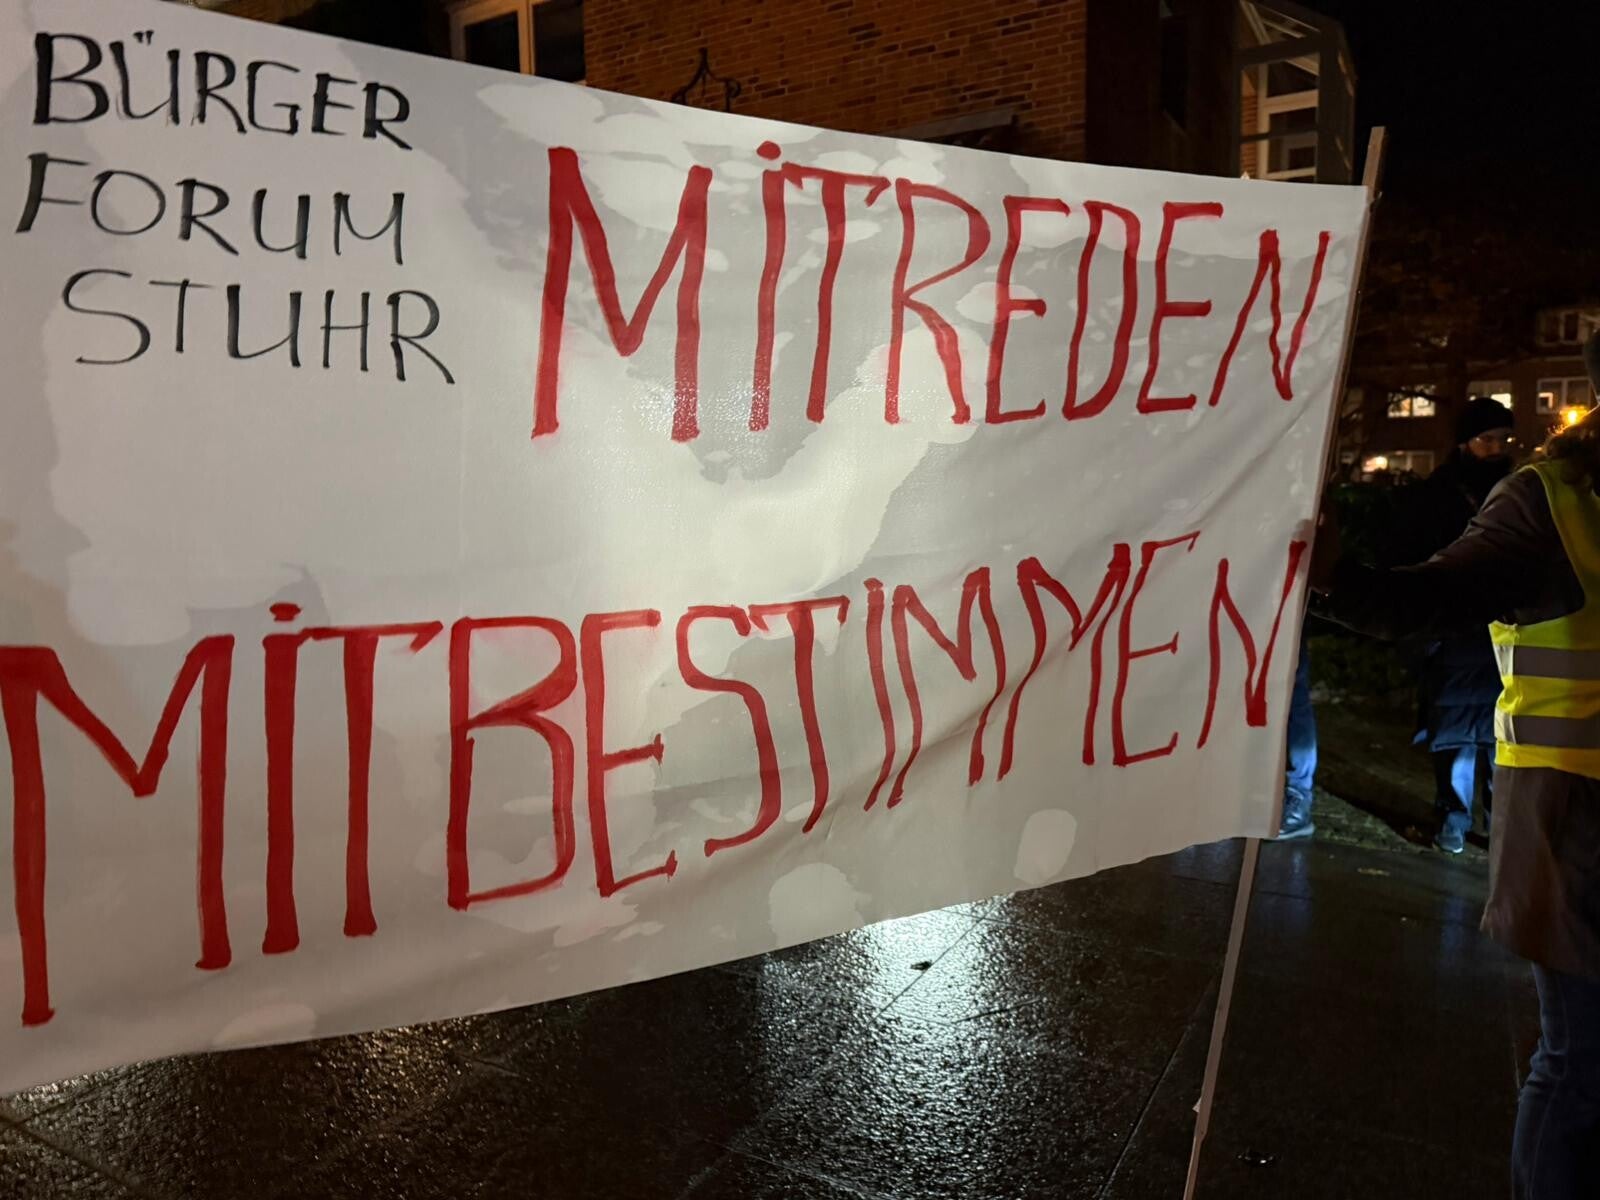 BÜRGER
FORUM
STUHR
MITREDEN
MITBESTIMMEN